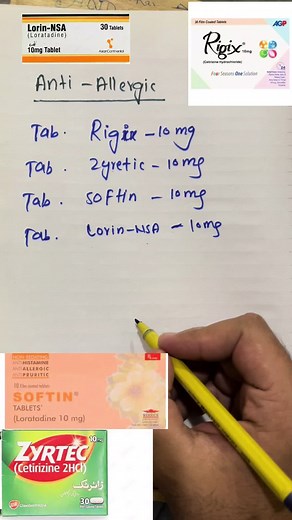 Lorin-NSA 30 Tablets
(Loratadine)
10mg Tablet
AGP
Rigix
10mg
(Cetirizine Hydrochloride)
Four Seasons One Solution
Anti-Allergic
Tab. Rigix - 10 mg
Tab. Zyretic - 10mg
Tab. Softin - 10mg
Tab. Lorin-NSA - 10mg
ANTIHISTAMINE
ANTIALLERGIC
ANTIPRURITIC
SOFTIN®
TABLETS
(Loratadine 10 mg)
ZYRTEC
(Cetirizine 2HCl)
زائرٹک
30